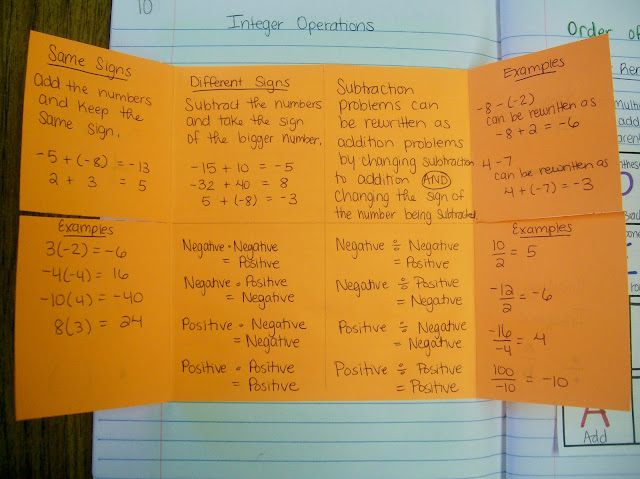 10
Integer Operations
Same Signs
Add the numbers
and keep the
Same sign.
-5 + (-8) = -13
2 + 3 = 5
Different Signs
Subtract the numbers
and take the sign
of the bigger number.
-15 + 10 = -5
-32 + 40 = 8
5 + (-8) = -3
Subtraction
problems can
be rewritten as
addition problems
by changing subtraction
to addition AND
changing the sign of
the number being subtracted.
Examples
-8 - (-2)
can be rewritten as
-8 + 2 = -6
4 - 7
can be rewritten as
4 + (-7) = -3
Examples
3(-2) = -6
-4(-4) = 16
-10(4) = -40
8(3) = 24
Negative • Negative
= Positive
Negative • Positive
= Negative
Positive • Negative
= Negative
Positive • Positive
= Positive
Negative ÷ Negative
= Positive
Negative ÷ Positive
= Negative
Positive ÷ Negative
= Negative
Positive ÷ Positive
= Positive
Examples
10/2 = 5
-12/2 = -6
-16/-4 = 4
100/-10 = -10
Order of
A
Add